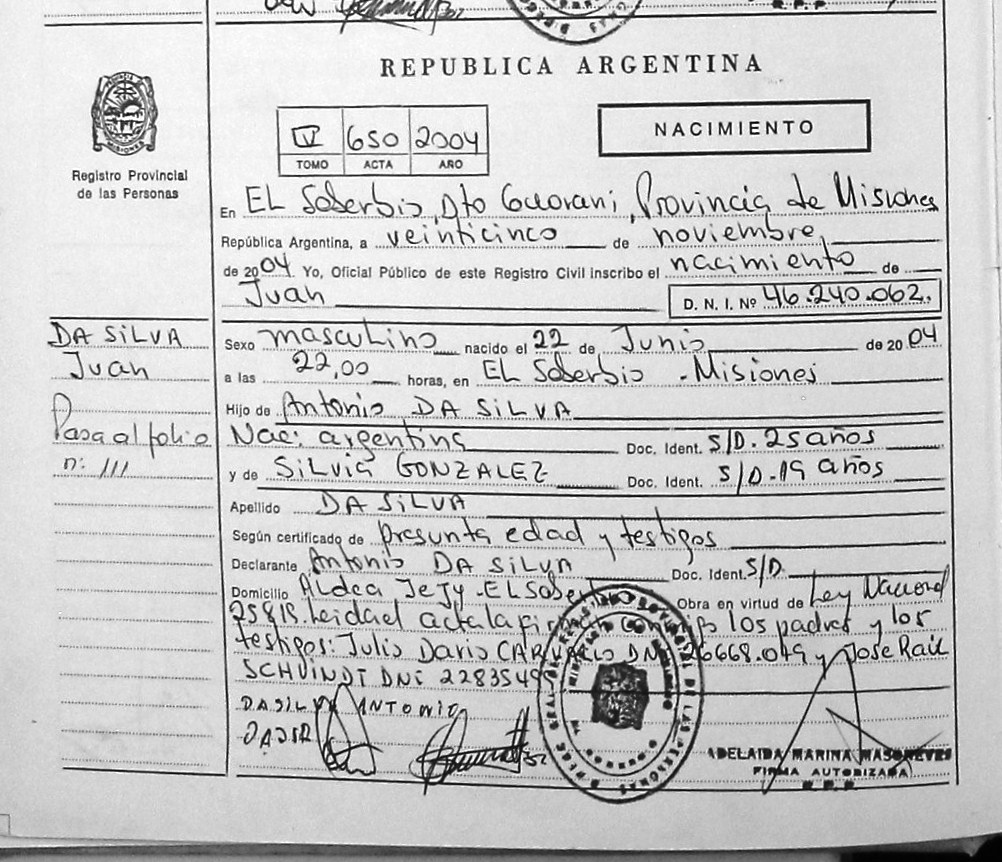 R.P.P.
REPUBLICA ARGENTINA
IV 650 2004
TOMO ACTA AÑO
NACIMIENTO
Registro Provincial
de las Personas
En EL Soberbio, Dto Guarani, Provincia de Misiones
República Argentina, a veinticinco de noviembre
de 2004 Yo, Oficial Público de este Registro Civil inscribo el nacimiento de
Juan D. N. I. Nº 46.240.062.
DA SILVA
Juan
Pasa al folio
n: 111
Sexo masculino nacido el 22 de Junio de 2004
a las 22,00 horas, en EL Soberbio - Misiones
Hijo de Antonio DA SILVA
Nac: argentina Doc. Ident. S/D. 25 años
y de SILVIA GONZALEZ Doc. Ident. S/D - 19 años
Apellido DA SILVA
Según certificado de presunta edad y testigos
Declarante Antonio DA SILVA Doc. Ident. S/D
Domicilio Aldea Jejy - EL Sober Obra en virtud de Ley Nacional
25819. Leida el acta la firman los padres y los
testigos: Julio Dario DNI 26668.049 y Jose Raúl
SCHUINDT DNI 2283549
DA SILVA ANTONIO
ADELAIDA MARINA
FIRMA AUTORIZADA
R.P.P.